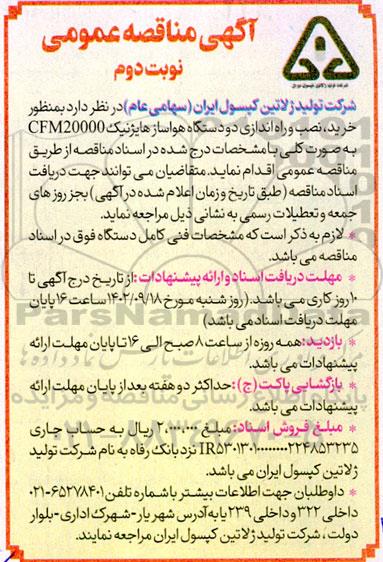 آگهی مناقصه عمومی
نوبت دوم
شرکت تولید ژلاتین کپسول ایران (سهامی عام) در نظر دارد بمنظور
خرید، نصب و راه اندازی دو دستگاه هواساز هایژنیک CFM20000
به صورت کلی با مشخصات درج شده در اسناد مناقصه از طریق
مناقصه عمومی اقدام نماید. متقاضیان می توانند جهت دریافت
اسناد مناقصه (طبق تاریخ و زمان اعلام شده در آگهی) بجز روز های
جمعه و تعطیلات رسمی به نشانی ذیل مراجعه نماید.
* لازم به ذکر است که مشخصات فنی کامل دستگاه فوق در اسناد
مناقصه می باشد.
* مهلت دریافت اسناد و ارائه پیشنهادات: از تاریخ درج آگهی تا
۱۰ روز کاری می باشد. (روز شنبه مورخ ۱۴۰۲/۰۹/۱۸ ساعت ۱۶ پایان
مهلت دریافت اسناد می باشد)
* بازدید: همه روزه از ساعت ۸ صبح الی ۱۶ تا پایان مهلت ارائه
پیشنهادات می باشد.
* بازگشایی پاکت (ج): حداکثر دو هفته بعد از پایان مهلت ارائه
پیشنهادات می باشد.
* مبلغ فروش اسناد: مبلغ ۲،۰۰۰،۰۰۰ ریال به حساب جاری
نزد بانک رفاه به نام شرکت تولید
ژلاتین کپسول ایران می باشد.
* داوطلبان جهت اطلاعات بیشتر با شماره تلفن ۶۵۲۷۸۴۰۱-۰۲۱
داخلی ۳۲۲ و داخلی ۲۳۹ یا به آدرس شهریار - شهرک اداری - بلوار
دولت ، شرکت تولید ژلاتین کپسول ایران مراجعه نمایند.
ParsNamadData